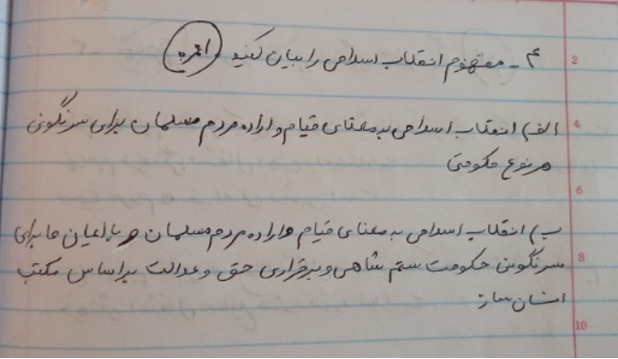 ۴ - مفهوم انقلاب اسلامی را بیان کنید. (۱نمره)
الف) انقلاب اسلامی به معنای قیام و اراده مردم مسلمان برای سرنگونی
هر نوع حکومتی
ب) انقلاب اسلامی به معنای قیام و اراده مردم مسلمان و با ایمان ما برای
سرنگونی حکومت ستم شاهی و برقراری حق و عدالت براساس مکتب
انسان ساز
2
4
6
8
10